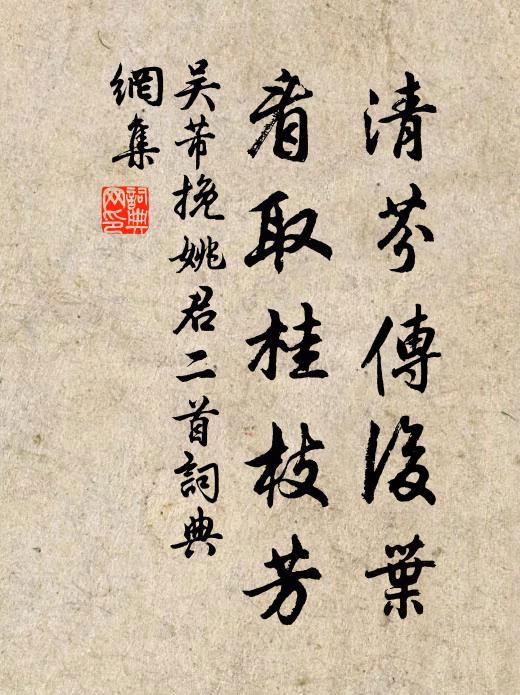 清芬傳後葉
看取桂枝芳
吴芾挽姚君二首詞典
網集
詞典網印